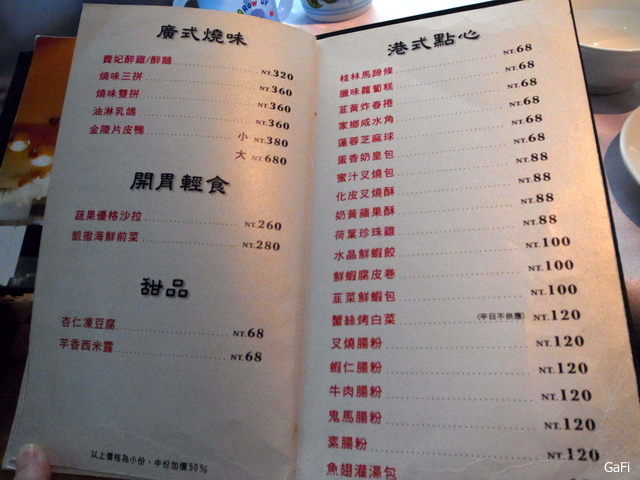 廣式燒味
貴妃醉雞/醉鵝 NT.320
燒味三拼 NT.360
燒味雙拼 NT.360
油淋乳鴿 NT.360
金陵片皮鴨 小 NT.380
大 NT.680
開胃輕食
蔬果優格沙拉 NT.260
凱撒海鮮前菜 NT.280
甜品
杏仁凍豆腐 NT.68
芋香西米露 NT.68
以上價格為小份，中份加價50%
港式點心
桂林馬蹄條 NT.68
臘味蘿蔔糕 NT.68
韮黃炸春捲 NT.68
家鄉咸水角 NT.68
蓮蓉芝麻球 NT.68
蛋香奶皇包 NT.68
蜜汁叉燒包 NT.88
化皮叉燒酥 NT.88
奶黃蘋果酥 NT.88
荷葉珍珠雞 NT.88
水晶鮮蝦餃 NT.100
鮮蝦腐皮卷 NT.100
韮菜鮮蝦包 NT.100
蟹絲烤白菜 (平日不供應) NT.120
叉燒腸粉 NT.120
蝦仁腸粉 NT.120
牛肉腸粉 NT.120
鬼馬腸粉 NT.120
素腸粉 NT.120
魚翅灌湯包
GaFi